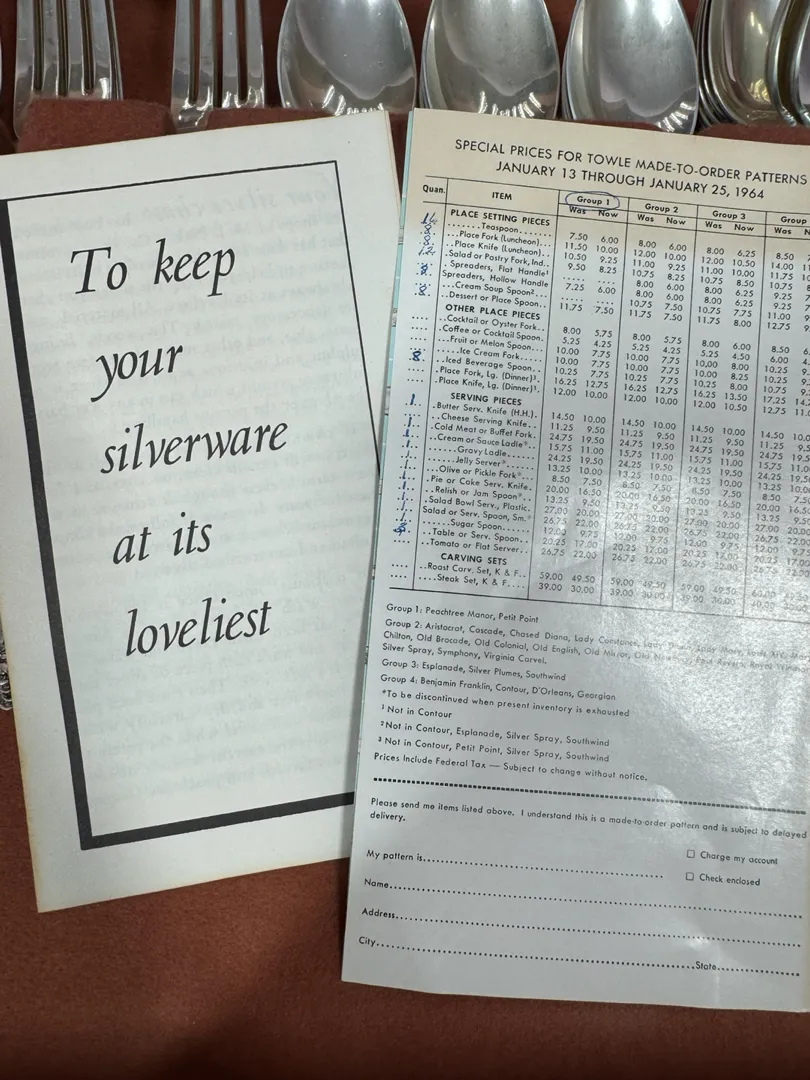 To keep
your
silverware
at its
loveliest
SPECIAL PRICES FOR TOWLE MADE-TO-ORDER PATTERNS
JANUARY 13 THROUGH JANUARY 25, 1964
Quan. ITEM Group 1 Group 2 Group 3 Group
Was Now Was Now Was Now Was
PLACE SETTING PIECES
.......Teaspoon.. 7.50 6.00 8.00 6.00 8.00 6.25 8.50
8. ..Place Fork (Luncheon)... 11.50 10.00 12.00 10.00 12.00 10.50 14.00
8. ..Place Knife (Luncheon).. 10.50 9.25 11.00 9.25 11.00 10.00 11.75
.Salad or Pastry Fork, Ind.. 9.50 8.25 10.75 8.25 10.75 8.50 10.75
Spreaders, Flat Handle¹ .... .... 8.00 6.00 8.00 6.25 9.25
8. Spreaders, Hollow Handle
..Cream Soup Spoon²... 7.25 6.00
8. ..Dessert or Place Spoon.. 11.75 7.50 11.75 7.50 11.75 8.00 12.75
OTHER PLACE PIECES
...Cocktail or Oyster Fork.. 8.00 5.75 8.00 5.75 8.00 6.00 8.50
..Coffee or Cocktail Spoon. 5.25 4.25 5.25 4.25 5.25 4.50 6.00
...Fruit or Melon Spoon... 10.00 7.75 10.00 7.75 10.00 8.00
.....Ice Cream Fork.... 10.00 7.75
8. ..Iced Beverage Spoon.. 10.25 7.75 10.25 7.75 10.25 8.00 10.75
.Place Fork, Lg. (Dinner)³. 16.25 12.75 16.25 12.75 16.25 13.50 17.25
.Place Knife, Lg. (Dinner)³. 12.00 10.00 12.00 10.00 12.00 10.50 12.75
SERVING PIECES
1. .Butter Serv. Knife (H.H.). 14.50 10.00 14.50 10.00 14.50 10.00 14.50
..Cheese Serving Knife.. 11.25 9.50 11.25 9.50 11.25 9.50 11.25
.Cold Meat or Buffet Fork. 24.75 19.50 24.75 19.50 24.75 19.50 24.75
..Cream or Sauce Ladle*.. 15.75 11.00 15.75 11.00 15.75 11.00 15.75
......Gravy Ladle.... 24.25 19.50 24.25 19.50 24.25 19.50 24.25
.....Jelly Server*... 13.25 10.00 13.25 10.00 13.25 10.00 13.25
..Olive or Pickle Fork*.. 8.50 7.50 8.50 7.50 8.50 7.50 8.50
.Pie or Cake Serv. Knife. 20.00 16.50 20.00 16.50 20.00 16.50 20.00
..Relish or Jam Spoon*.. 13.25 9.50 13.25 9.50 13.25 9.50 13.25
.Salad Bowl Serv., Plastic. 27.00 20.00 27.00 20.00 27.00 20.00 27.00
Salad or Serv. Spoon, Sm.* 26.75 22.00 26.75 22.00 26.75 22.00 26.75
......Sugar Spoon.... 12.00 9.75 12.00 9.75 12.00 9.75 12.00
..Table or Serv. Spoon.. 20.25 17.00 20.25 17.00 20.25 17.00 20.25
..Tomato or Flat Server.. 26.75 22.00 26.75 22.00 26.75 22.00 26.75
CARVING SETS
..Roast Carv. Set, K & F.. 59.00 49.50 59.00 49.50 59.00 49.50
....Steak Set, K & F.... 39.00 30.00 39.00 30.00 39.00 30.00
Group 1: Peachtree Manor, Petit Point
Group 2: Aristocrat, Cascade, Chased Diana, Lady Constance, Lady Diana, Lady Mary, Louis XIV,
Chilton, Old Brocade, Old Colonial, Old English, Old Mirror, Old Newbury, Paul Revere, Royal
Silver Spray, Symphony, Virginia Carvel.
Group 3: Esplanade, Silver Plumes, Southwind
Group 4: Benjamin Franklin, Contour, D'Orleans, Georgian
*To be discontinued when present inventory is exhausted
¹ Not in Contour
² Not in Contour, Esplanade, Silver Spray, Southwind
³ Not in Contour, Petit Point, Silver Spray, Southwind
Prices Include Federal Tax — Subject to change without notice.
Please send me items listed above. I understand this is a made-to-order pattern and is subject to delayed
delivery.
My pattern is.......... ☐ Charge my account
☐ Check enclosed
Name..........
Address..........
City..........State..........